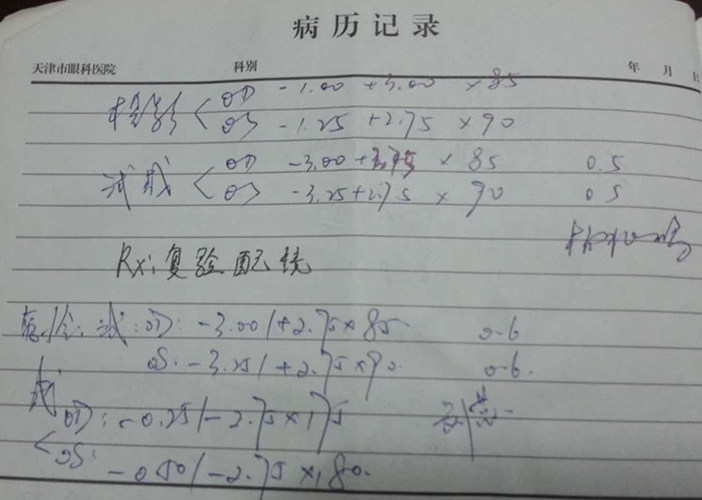 病历记录
天津市眼科医院 科别 年 月 日
检影 OD -1.00 +3.00 ×85
OS -1.25 +2.75 ×90
试戴 OD -3.00 +2.75 × 85 0.5
OS -3.25+2.75 × 90 0.5
Rx: 复验配镜
试: OD: -3.00/+2.75×85 0.6
OS: -3.25/+2.75×90. 0.6.
或 OD: -0.25/-2.75×175
OS: -0.50/-2.75×180.